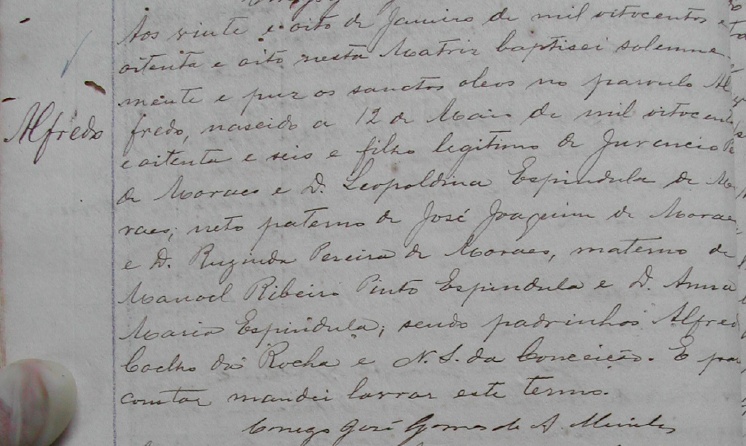 Aos vinte e oito de Janeiro de mil oitocentos e
oitenta e oito nesta Matriz baptisei solemne-
mente e puz os sanctos oleos no parvulo Al
Alfredo
fredo, nascido a 12 de Maio de mil oitocentos
e oitenta e seis e filho legitimo de Juvencio
de Moraes e D. Leopoldina Espindula de Mo
raes; neto paterno de José Joaquim de Moraes
e D. Pereira de Moraes, materno de
Manoel Ribeiro Pinto Espindula e D. Anna
Maria Espindula; sendo padrinhos Alfredo
Coelho da Rocha e N. S. da Conceição. E para
constar mandei lavrar este termo.
Conego José Gomes de A.